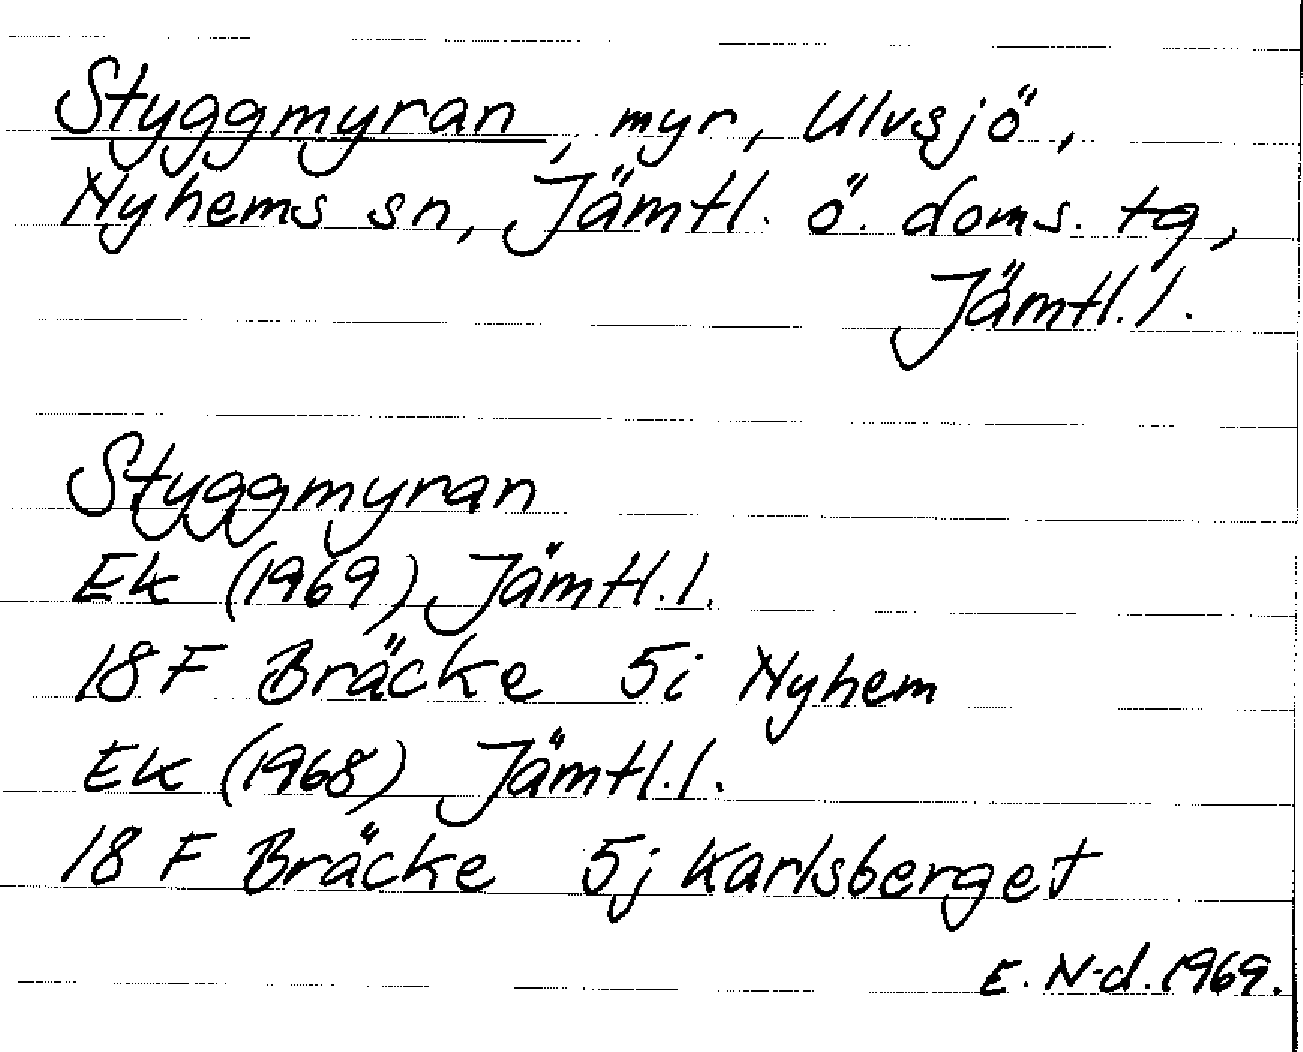 Styggmyran, myr, Ulvsjö,
Nyhems sn, Jämtl. ö. doms. tg,
Jämtl. l.
Styggmyran
Ek (1969) Jämtl. l.
18 F Bräcke 5i Nyhem
Ek (1968) Jämtl. l.
18 F Bräcke 5j Karlsberget
E. N-d. 1969.